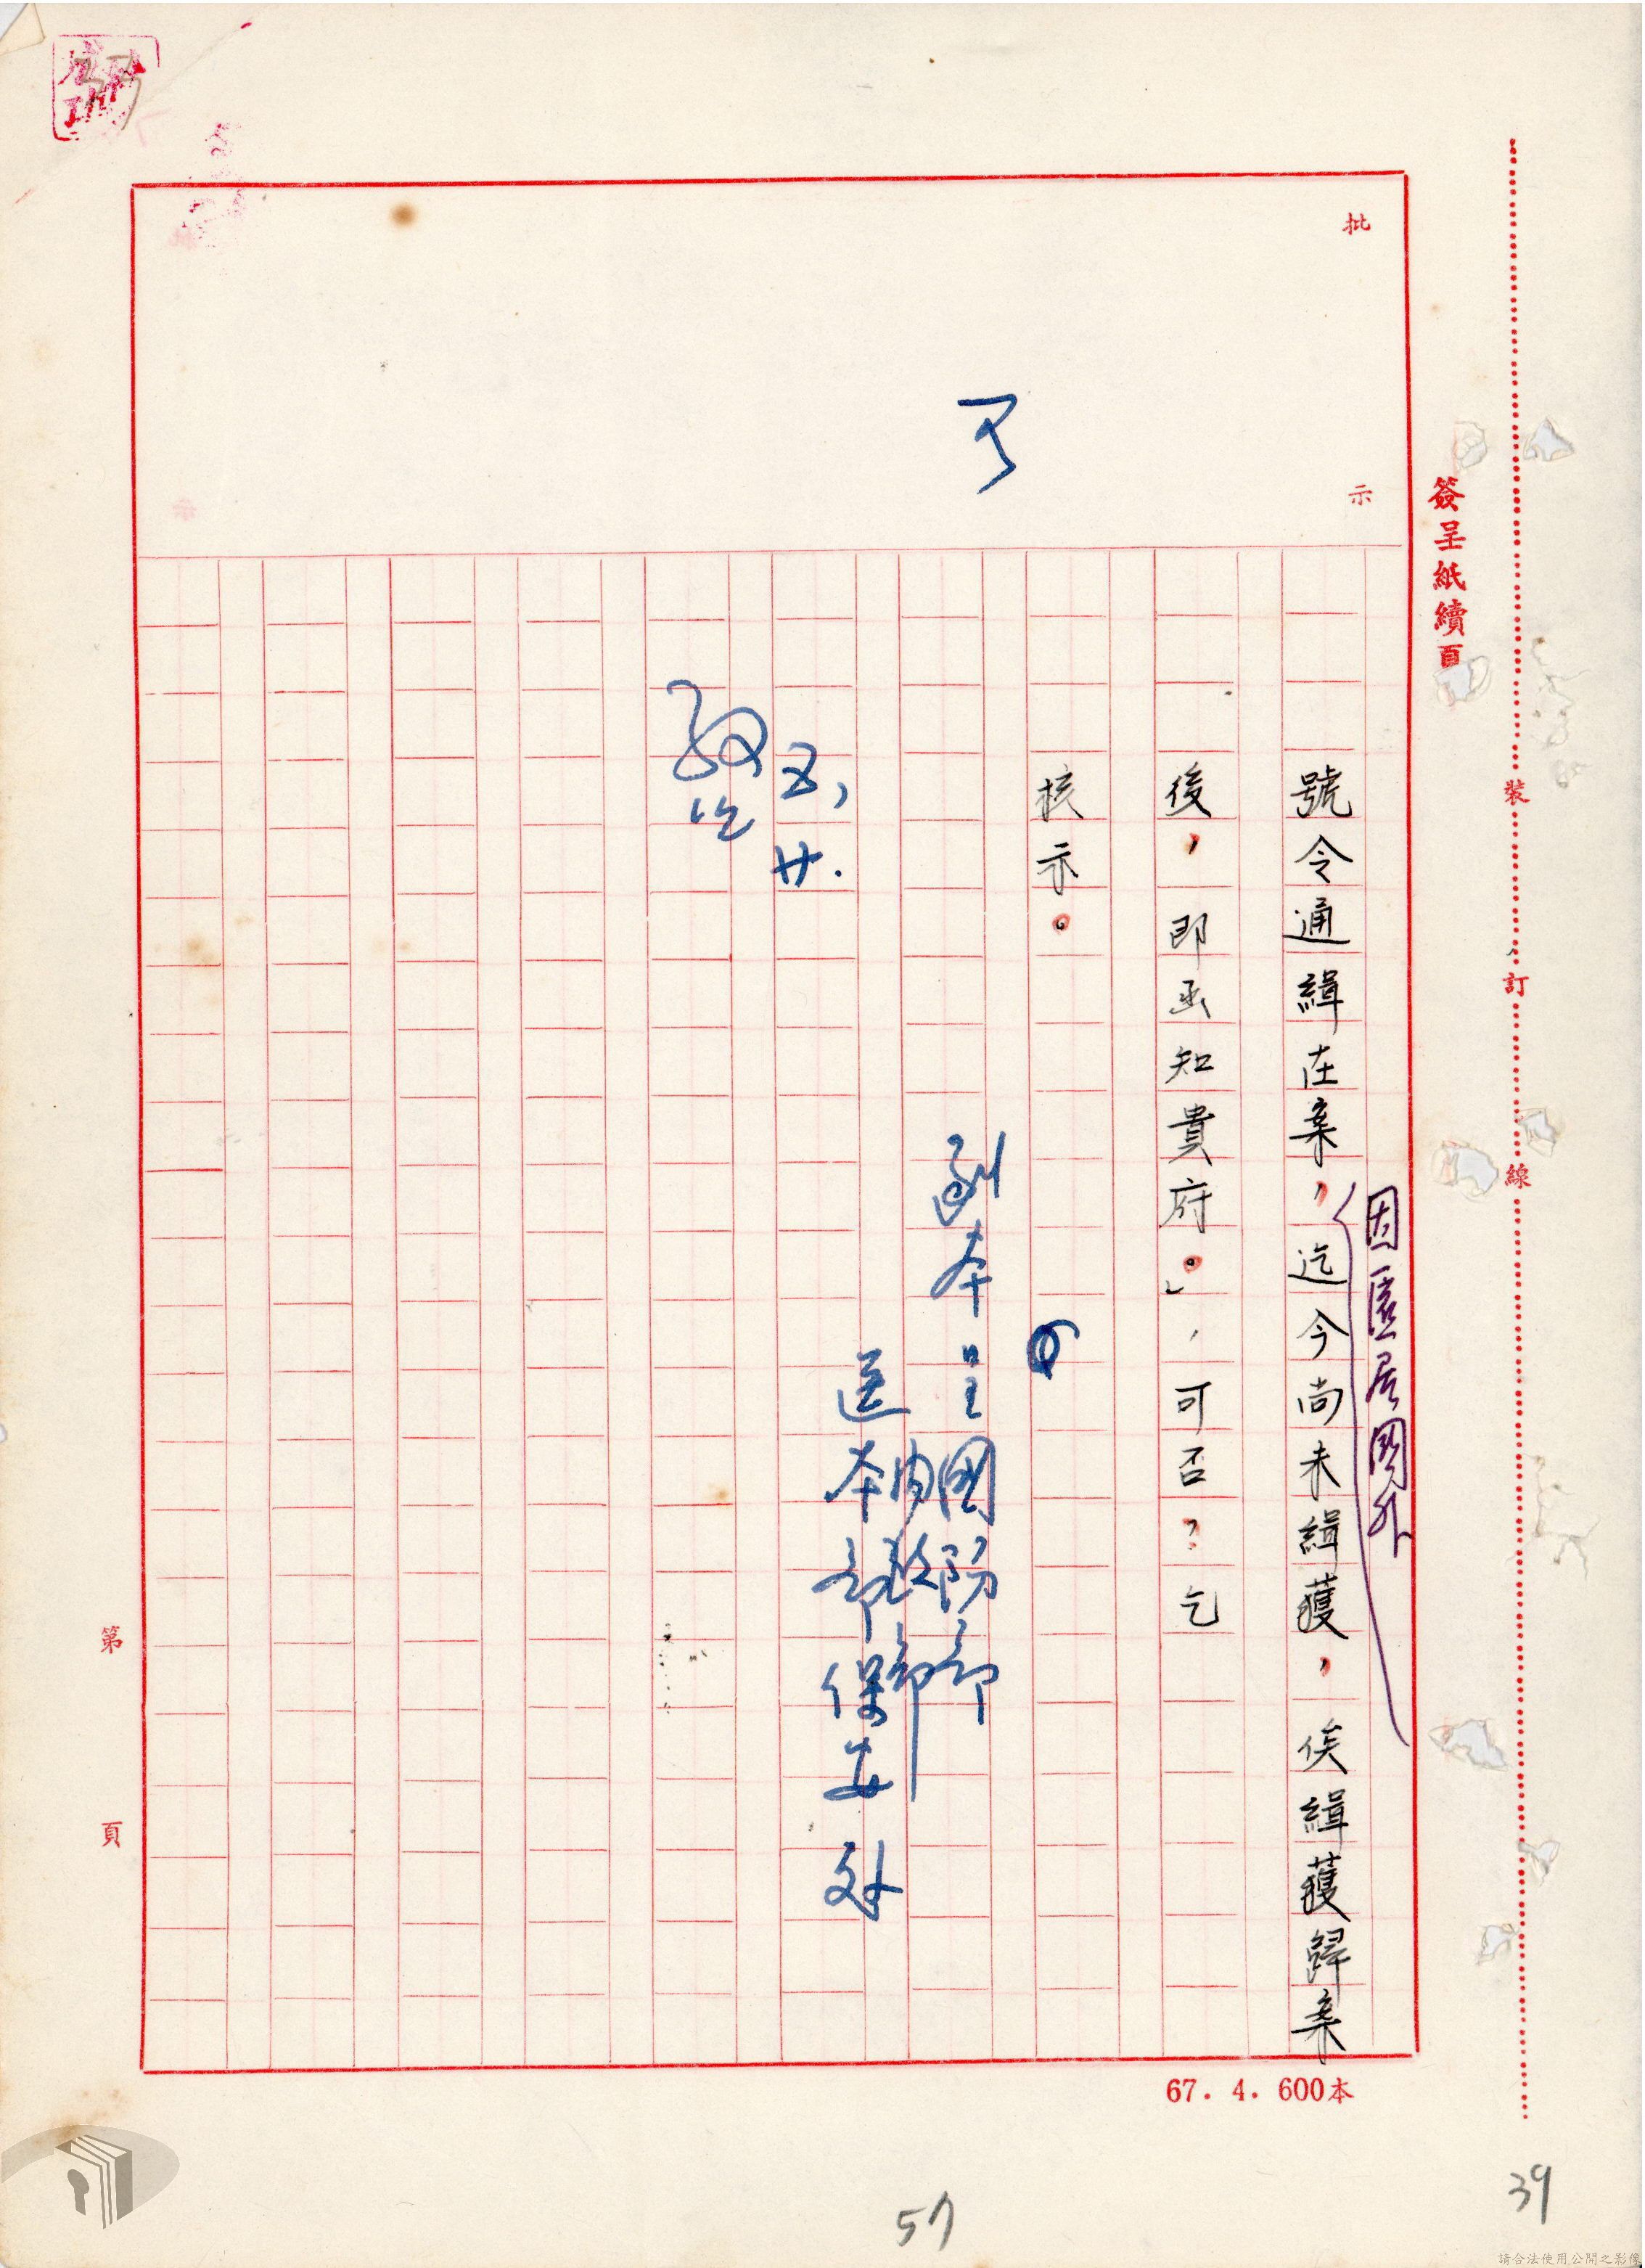 簽呈紙續頁
裝
訂
線
批
示
可
因匿居國外
號令通緝在案,迄今尚未緝獲,俟緝獲歸案
後,即函知貴府。」,可否?乞
核示。
副本呈國防部
內政部
送本部保安處
五,廿.
第
頁
67. 4. 600本
57
39
請合法使用公開之影像